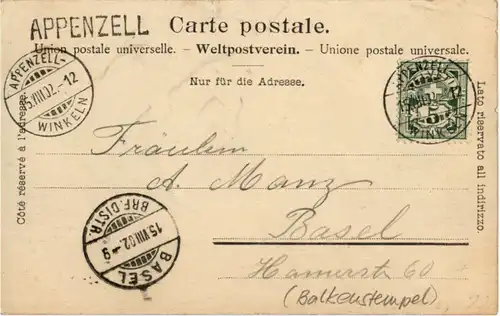 APPENZELL
Carte postale.
Union postale universelle. – Weltpostverein. – Unione postale universale.
Nur für die Adresse.
APPENZELL-
15.VIII.02.-12
WINKELN
APPENZELL-
12
5
WINKELN
Côté réservé à l'adresse.
Lato riservato all indirizzo.
Fräulein
A. Manz
Basel
60
(Balkenstempel)
BRF.DISTR.
15.VIII.02.-9
BASEL